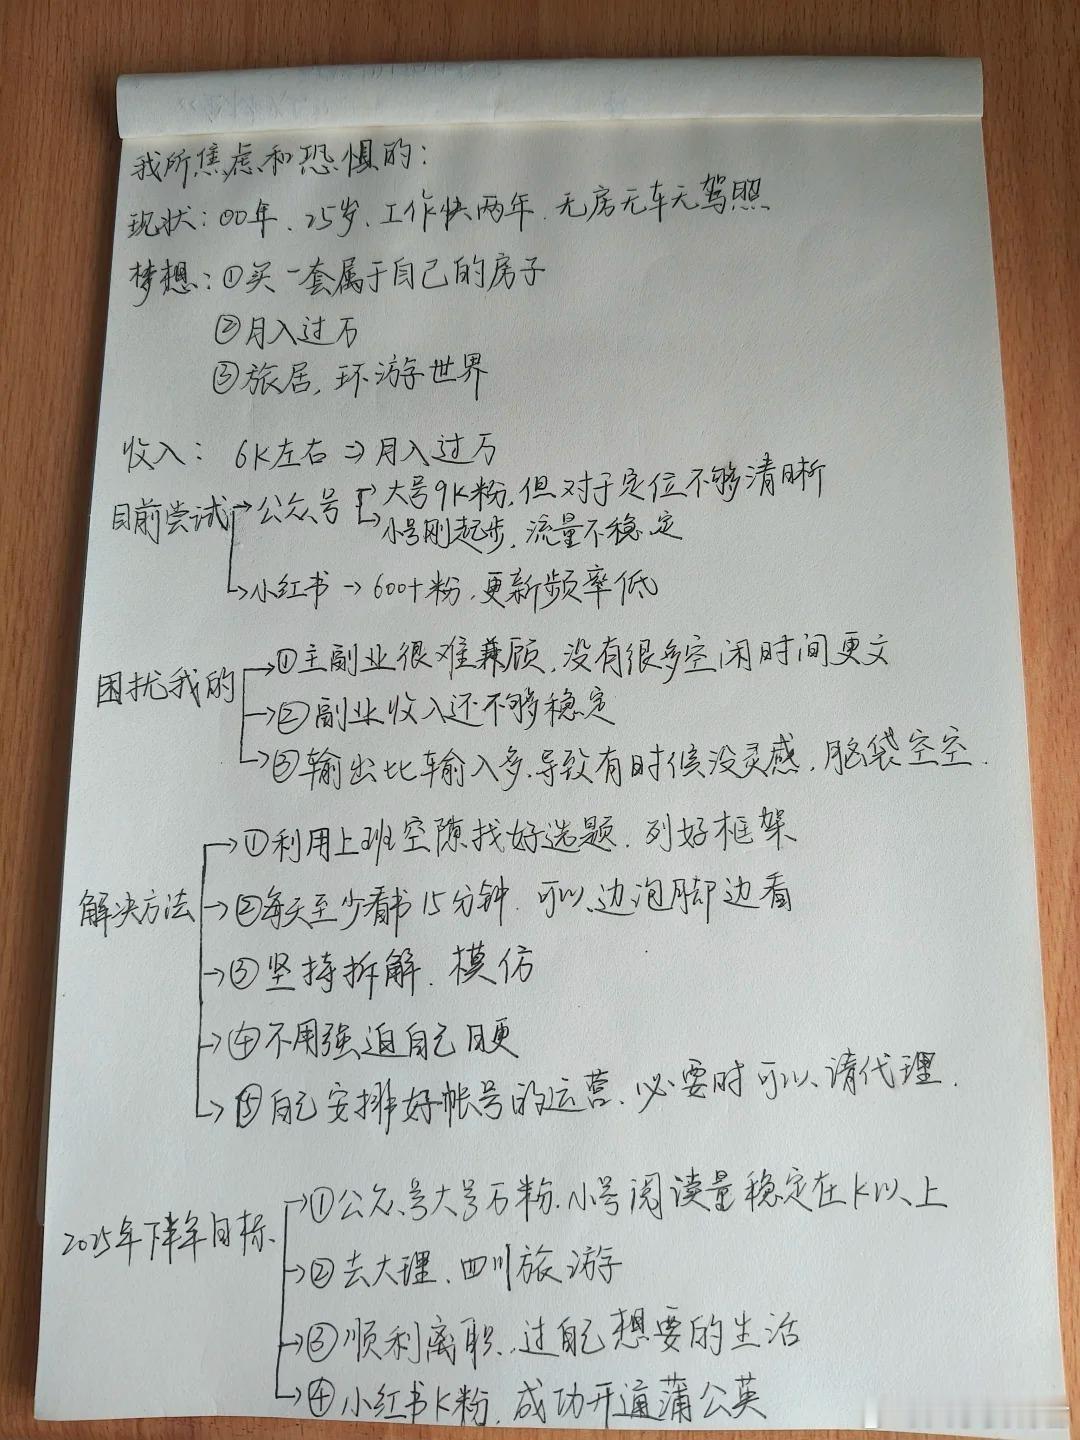 我所焦虑和恐惧的：
现状：00年、25岁、工作快两年、无房无车无驾照
梦想：①买一套属于自己的房子
②月入过万
③旅居，环游世界
收入： 6K左右 => 月入过万
目前尝试 → 公众号 → 大号9K粉，但对于定位不够清晰
→ 小号刚起步，流量不稳定
→ 小红书 → 600+粉，更新频率低
困扰我的 → ①主副业很难兼顾，没有很多空闲时间更文
→ ②副业收入还不够稳定
→ ③输出比输入多，导致有时候没灵感，脑袋空空.
解决方法 → ①利用上班空隙找好选题、列好框架
→ ②每天至少看书15分钟，可以边泡脚边看
→ ③坚持拆解、模仿
→ ④不用强迫自己日更
→ ⑤自己安排好帐号的运营、必要时可以请代理.
2025年下半年目标 → ①公众号大号万粉、小号阅读量稳定在K以上
→ ②去大理、四川旅游
→ ③顺利离职，过自己想要的生活
→ ④小红书K粉，成功开通蒲公英